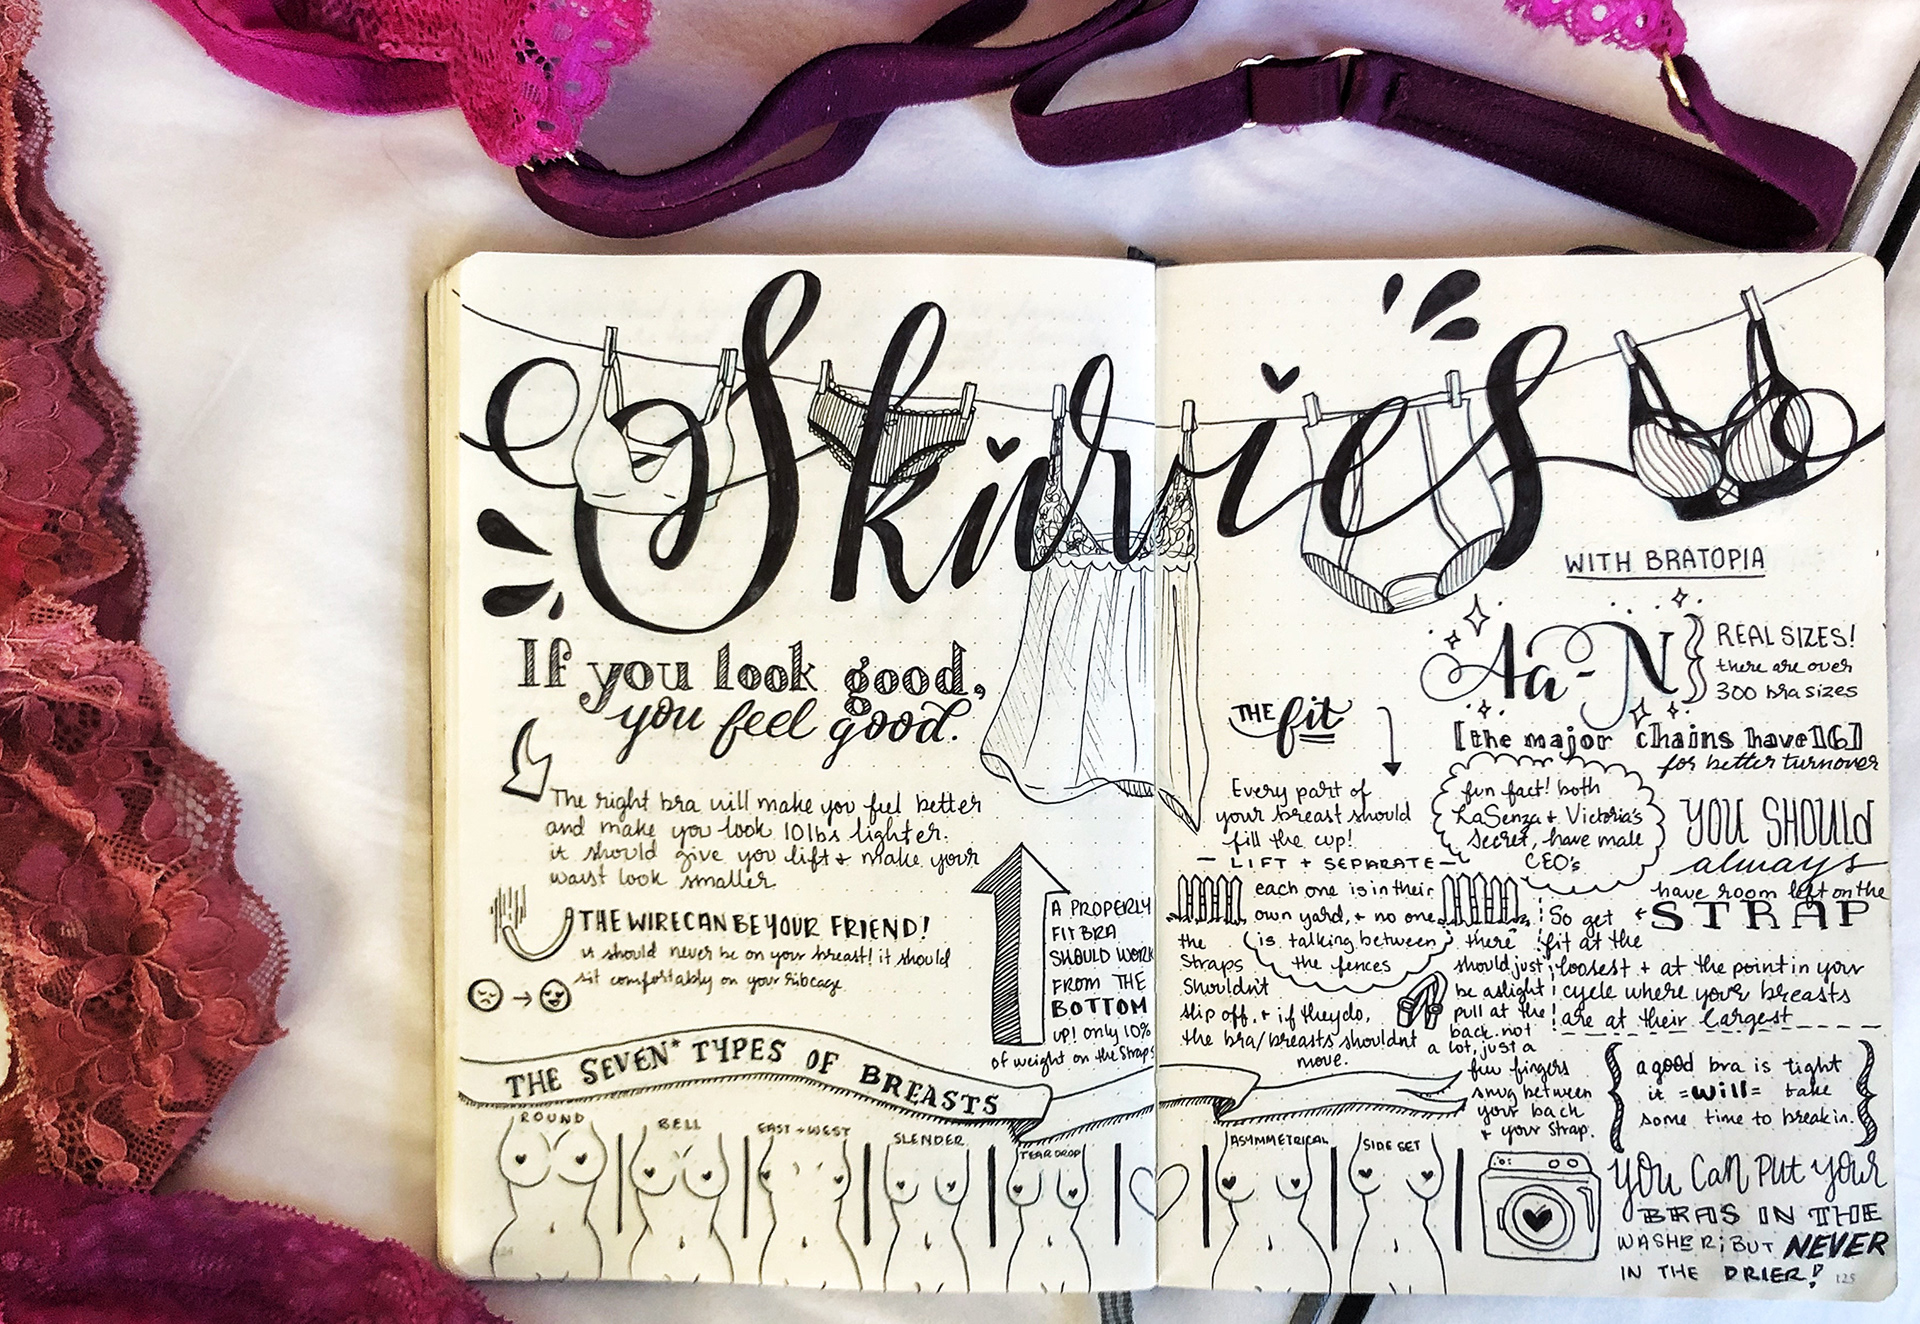 Skivvies
WITH BRATOPIA
If you look good,
you feel good.
The right bra will make you feel better
and make you look 10lbs lighter.
it should give you lift + make your
waist look smaller
THE WIRE CAN BE YOUR FRIEND!
it should never be on your breast! it should
sit comfortably on your ribcage
A PROPERLY
FIT BRA
SHOULD WORK
FROM THE
BOTTOM
up! only 10%
of weight on the straps
THE SEVEN* TYPES OF BREASTS
ROUND
BELL
EAST + WEST
SLENDER
TEAR DROP
ASYMMETRICAL
SIDE SET
Aa-N
REAL SIZES!
there are over
300 bra sizes
[the major chains have 16]
for better turnover
THE fit
Every part of
your breast should
fill the cup!
- LIFT + SEPARATE -
each one is in their
own yard, + no one
is talking between
the fences
the
straps
Shouldn't
slip off, + if they do,
the bra/breasts shouldnt
move.
there
should just
be a slight
pull at the
back. not
a lot, just a
few fingers
snug between
your back
+ your strap.
fun fact! both
LaSenza + Victoria's
Secret, have male
CEO's
YOU SHOULD
always
have room left on the
STRAP
So get
fit at the
loosest + at the point in your
cycle where your breasts
are at their largest
a good bra is tight
it =will= take
some time to break in.
YOU CAN PUT YOUR
BRAS IN THE
WASHER; BUT NEVER
IN THE DRIER!
125